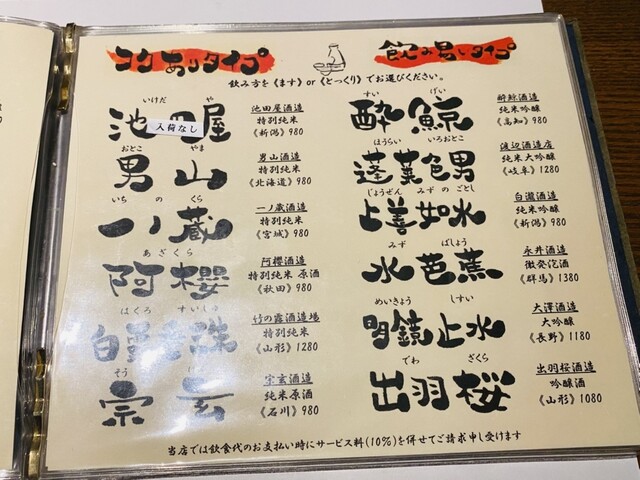 コクありタイプ
飲み易いタイプ
飲み方を《ます》or《とっくり》でお選びください。
いけだ や
池田屋
入荷なし
池田屋酒造
特別純米
《新潟》980
おとこ やま
男山
男山酒造
特別純米
《北海道》980
いち の くら
一ノ蔵
一ノ蔵酒造
特別純米
《宮城》980
あざくら
阿櫻
阿櫻酒造
特別純米 原酒
《秋田》980
はくろ すいしゅ
白露垂珠
竹の露酒造場
特別純米
《山形》1280
そう げん
宗玄
宗玄酒造
純米原酒
《石川》980
すい げい
酔鯨
酔鯨酒造
純米吟醸
《高知》980
ほうらい いろおとこ
蓬莱色男
渡辺酒造店
純米大吟醸
《岐阜》1280
じょうぜん みずのごとし
上善如水
白瀧酒造
純米吟醸
《新潟》980
みず ばしょう
水芭蕉
永井酒造
微発泡酒
《群馬》1380
めいきょう しすい
明鏡止水
大澤酒造
大吟醸
《長野》1180
でわ ざくら
出羽桜
出羽桜酒造
吟醸酒
《山形》1080
当店では飲食代のお支払い時にサービス料(10%)を併せてご請求申し受けます